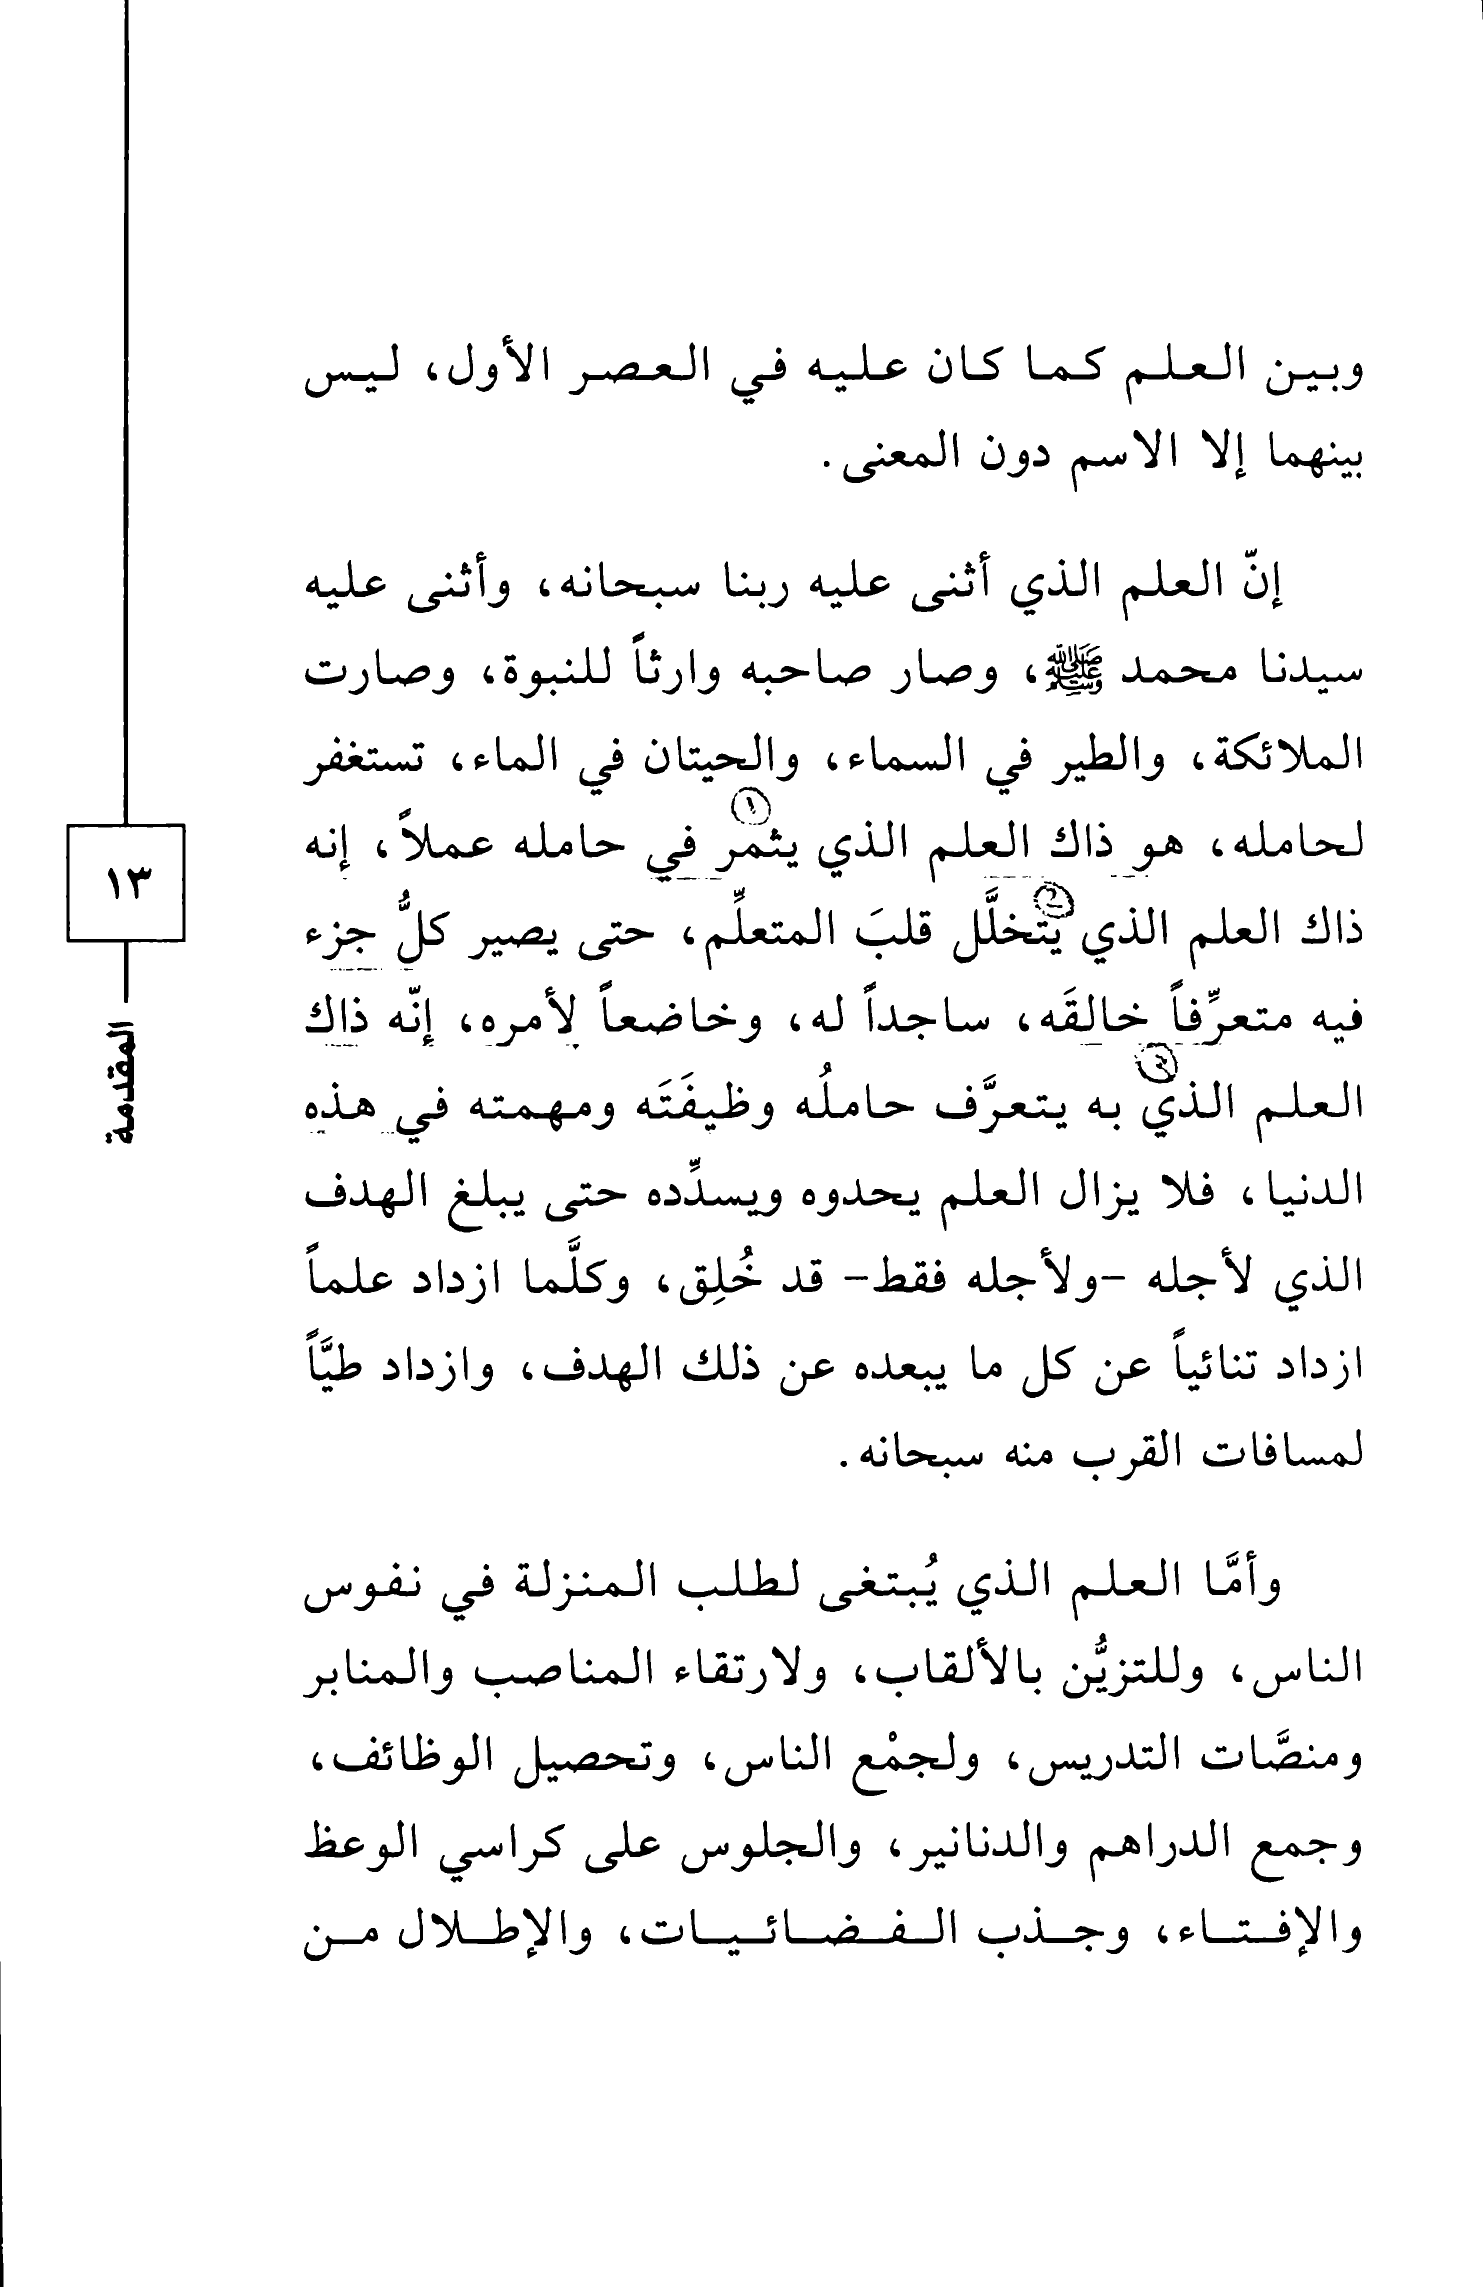 وبين العلم كما كان عليه في العصر الأول، ليس
بينهما إلا الاسم دون المعنى.
إنّ العلم الذي أثنى عليه ربنا سبحانه، وأثنى عليه
سيدنا محمد ﷺ، وصار صاحبه وارثاً للنبوة، وصارت
الملائكة، والطير في السماء، والحيتان في الماء، تستغفر
لحامله، هو ذاك العلم الذي يثمر في حامله عملاً، إنه
١
ذاك العلم الذي يتخلَّل قلبَ المتعلِّم، حتى يصير كلُّ جزء
2
فيه متعرِّفاً خالقَه، ساجداً له، وخاضعاً لأمره، إنّه ذاك
العلم الذي به يتعرَّف حاملُه وظيفَتَه ومهمته في هذه
الدنيا، فلا يزال العلم يحدوه ويسدِّده حتى يبلغ الهدف
الذي لأجله -ولأجله فقط- قد خُلِق، وكلَّما ازداد علماً
ازداد تنائياً عن كل ما يبعده عن ذلك الهدف، وازداد طيَّاً
لمسافات القرب منه سبحانه.
وأمَّا العلم الذي يُبتغى لطلب المنزلة في نفوس
الناس، وللتزيُّن بالألقاب، ولارتقاء المناصب والمنابر
ومنصَّات التدريس، ولجمْع الناس، وتحصيل الوظائف،
وجمع الدراهم والدنانير، والجلوس على كراسي الوعظ
والإفتاء، وجذب الفضائيات، والإطلال من
١٣
المقدمة